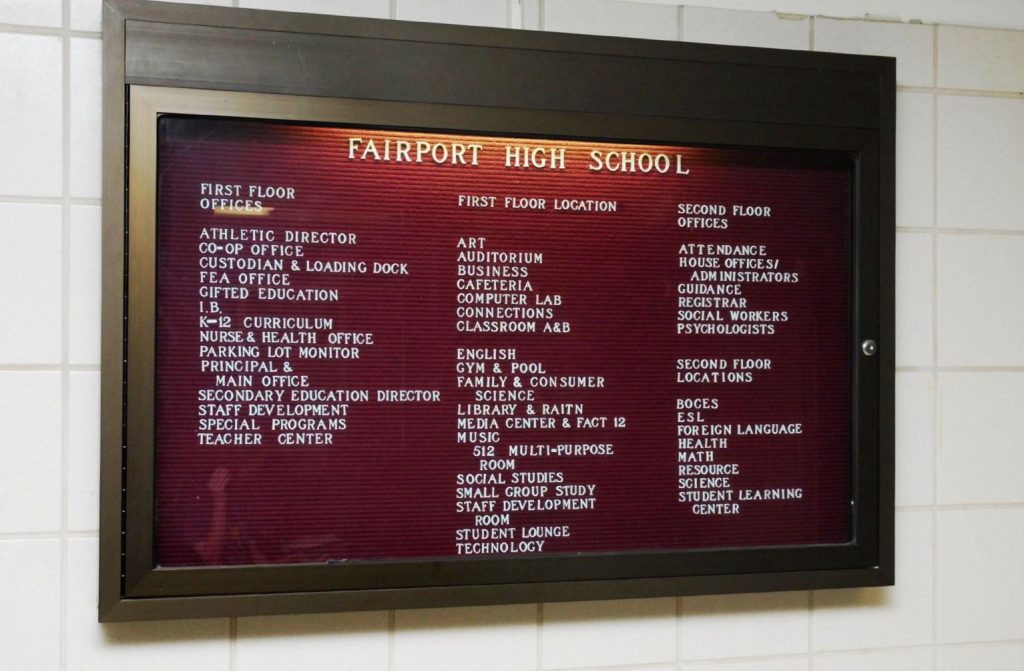 FAIRPORT HIGH SCHOOL
FIRST FLOOR
OFFICES
ATHLETIC DIRECTOR
CO-OP OFFICE
CUSTODIAN & LOADING DOCK
FEA OFFICE
GIFTED EDUCATION
I.B.
K-12 CURRICULUM
NURSE & HEALTH OFFICE
PARKING LOT MONITOR
PRINCIPAL &
MAIN OFFICE
SECONDARY EDUCATION DIRECTOR
STAFF DEVELOPMENT
SPECIAL PROGRAMS
TEACHER CENTER
FIRST FLOOR LOCATION
ART
AUDITORIUM
BUSINESS
CAFETERIA
COMPUTER LAB
CONNECTIONS
CLASSROOM A&B
ENGLISH
GYM & POOL
FAMILY & CONSUMER
SCIENCE
LIBRARY & RAITN
MEDIA CENTER & FACT 12
MUSIC
512 MULTI-PURPOSE
ROOM
SOCIAL STUDIES
SMALL GROUP STUDY
STAFF DEVELOPMENT
ROOM
STUDENT LOUNGE
TECHNOLOGY
SECOND FLOOR
OFFICES
ATTENDANCE
HOUSE OFFICES/
ADMINISTRATORS
GUIDANCE
REGISTRAR
SOCIAL WORKERS
PSYCHOLOGISTS
SECOND FLOOR
LOCATIONS
BOCES
ESL
FOREIGN LANGUAGE
HEALTH
MATH
RESOURCE
SCIENCE
STUDENT LEARNING
CENTER